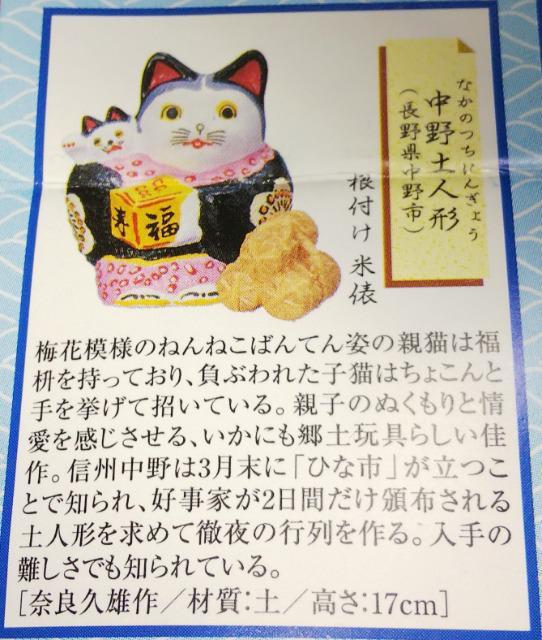 なかのつちにんぎょう
中野土人形
（長野県中野市）
根付け 米俵
福
来
梅花模様のねんねこばんてん姿の親猫は福
枡を持っており、負ぶわれた子猫はちょこんと
手を挙げて招いている。親子のぬくもりと情
愛を感じさせる、いかにも郷土玩具らしい佳
作。信州中野は3月末に「ひな市」が立つこ
とで知られ、好事家が2日間だけ頒布される
土人形を求めて徹夜の行列を作る。入手の
難しさでも知られている。
［奈良久雄作／材質：土／高さ：17cm］